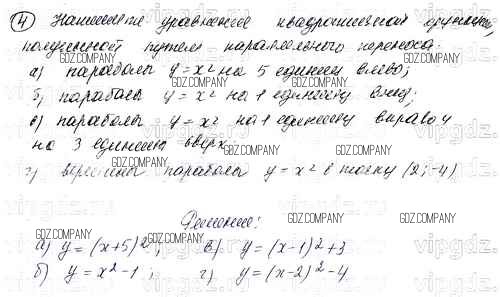 4) Напишите уравнение квадратичной функции,
полученной путем параллельного переноса:
а) параболы y = x² на 5 единиц влево;
б) параболы y = x² на 1 единицу вниз;
в) параболы y = x² на 1 единицу вправо и
на 3 единицы вверх
г) вершины параболы y = x² в точку (2; -4)
Решение:
а) y = (x+5)²; в) y = (x-1)² + 3
б) y = x² - 1; г) y = (x-2)² - 4
GDZ.COMPANY
vipgdz.ru